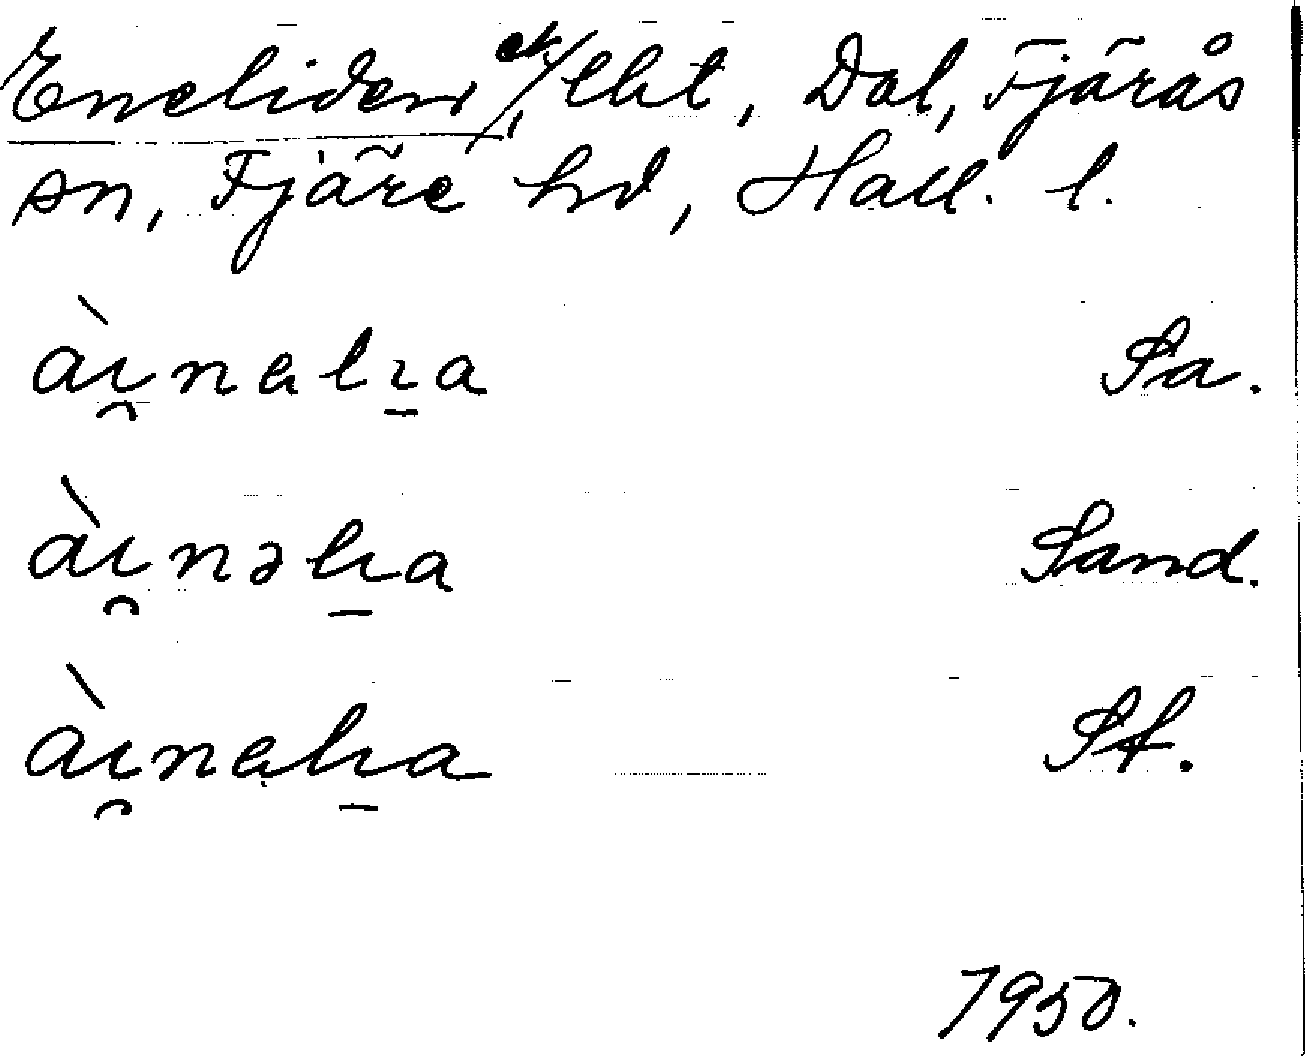 Eneliden, ek/lht, Dal, Fjärås
sn, Fjäre hd, Hall. l.
àı̯nalıa Sa.
àı̯nəlıa Sand.
àı̯nalıa Sf.
1950.